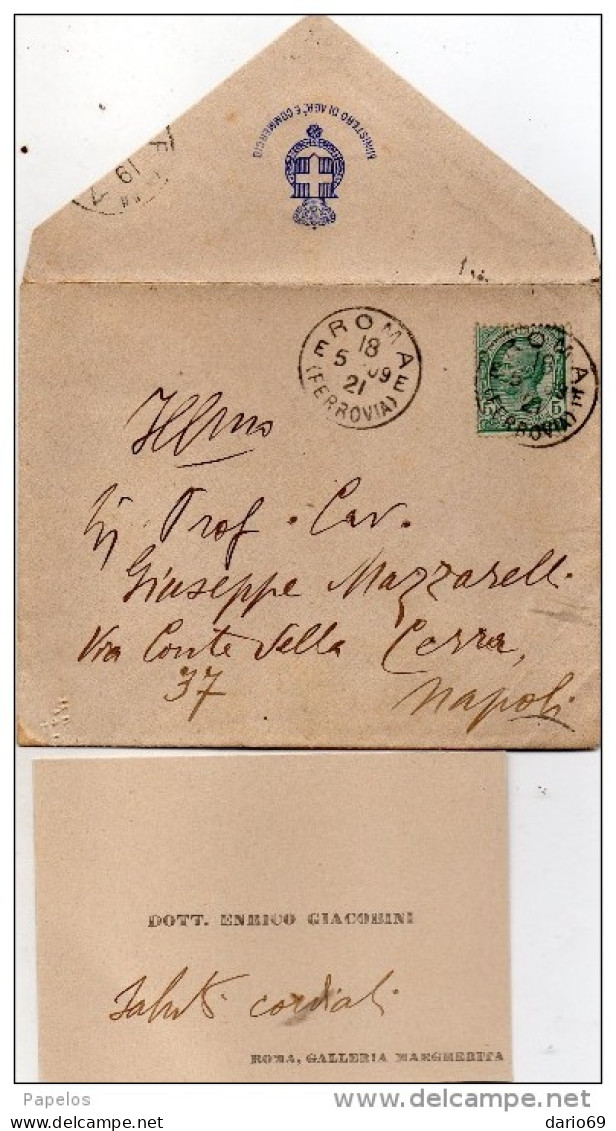 MINISTERO DI AGR.A E COMMERCIO
19
ROMA
18
5 - 09
21
(FERROVIA)
ROMA
18
5
21
(FERROVIA)
5
Prof. Cav.
Giuseppe Mazzarelli
Via Conte della Cerra,
37
Napoli
DOTT. ENRICO GIACOBINI
Saluti cordiali
ROMA, GALLERIA MARGHERITA
Papelos
delcampe.net
dario69